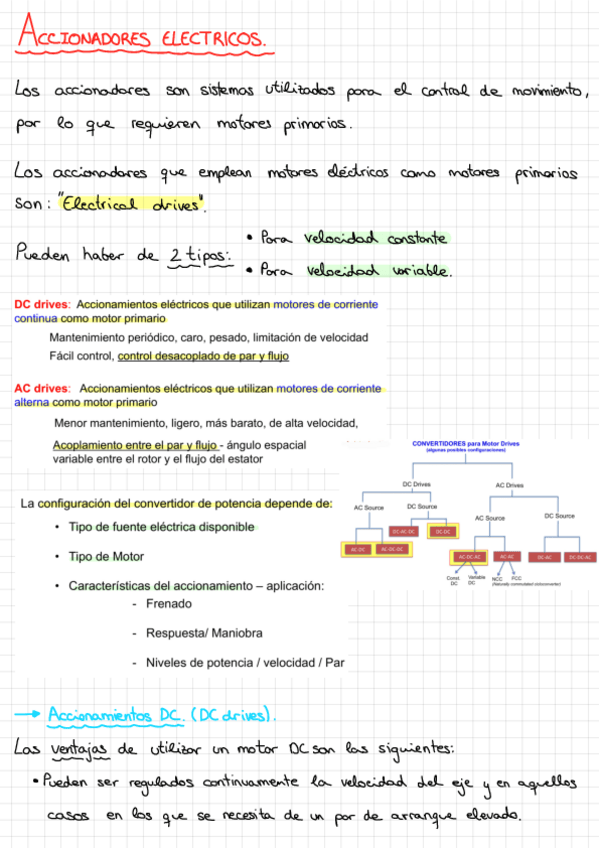 ACCIONADORES ELECTRICOS.
Los accionadores son sistemas utilizados para el control de movimiento,
por lo que requieren motores primarios.
Los accionadores que emplean motores eléctricos como motores primarios
son: "Electrical drives".
Pueden haber de 2 tipos:
• Para velocidad constante
• Para velocidad variable.
DC drives: Accionamientos eléctricos que utilizan motores de corriente
continua como motor primario
Mantenimiento periódico, caro, pesado, limitación de velocidad
Fácil control, control desacoplado de par y flujo
AC drives: Accionamientos eléctricos que utilizan motores de corriente
alterna como motor primario
Menor mantenimiento, ligero, más barato, de alta velocidad,
Acoplamiento entre el par y flujo - ángulo espacial
variable entre el rotor y el flujo del estator
CONVERTIDORES para Motor Drives
(algunas posibles configuraciones)
DC Drives AC Drives
AC Source DC Source AC Source DC Source
DC-AC-DC DC-DC
AC-DC AC-DC-DC AC-DC-AC AC-AC DC-AC DC-DC-AC
Const. DC Variable DC NCC FCC
(Naturally commutated cicloconverter)
La configuración del convertidor de potencia depende de:
• Tipo de fuente eléctrica disponible
• Tipo de Motor
• Características del accionamiento – aplicación:
- Frenado
- Respuesta/ Maniobra
- Niveles de potencia / velocidad / Par
→ Accionamientos DC. (DC drives).
Las ventajas de utilizar un motor DC son las siguientes:
• Pueden ser regulados continuamente la velocidad del eje y en aquellos
casos en los que se necesita de un par de arranque elevado.